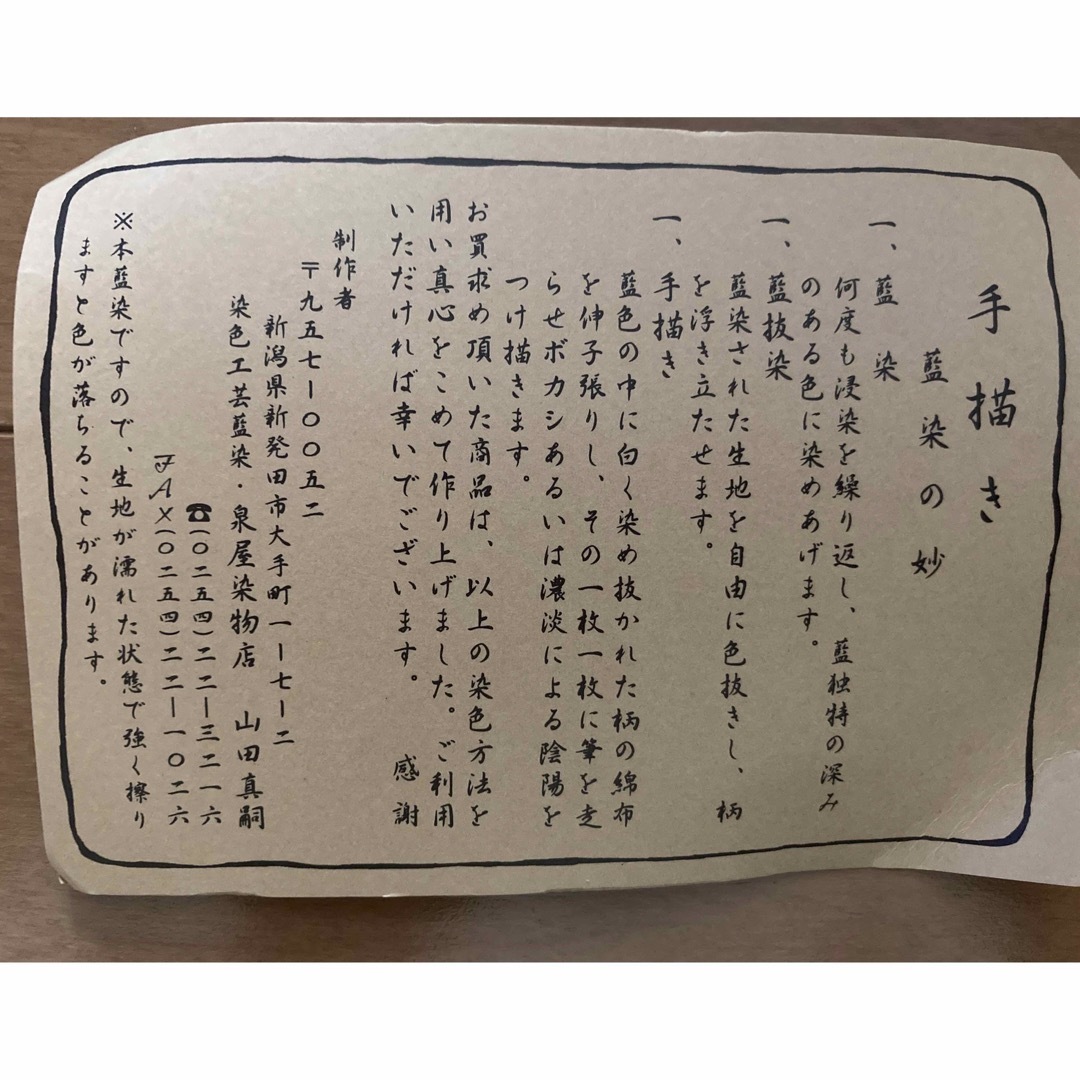 手描き
藍染の妙
一、藍　染
何度も浸染を繰り返し、藍独特の深み
のある色に染めあげます。
一、藍抜染
藍染された生地を自由に色抜きし、柄
を浮き立たせます。
一、手描き
藍色の中に白く染め抜かれた柄の綿布
を伸子張りし、その一枚一枚に筆を走
らせボカシあるいは濃淡による陰陽を
つけ描きます。
お買求め頂いた商品は、以上の染色方法を
用い真心をこめて作り上げました。ご利用
いただければ幸いでございます。　感謝
制作者
〒九五七ー〇〇五二
新潟県新発田市大手町一ー七ー二
染色工芸藍染・泉屋染物店　山田真嗣
☎(〇二五四)二二ー三二一六
FAX(〇二五四)二二ー一〇二六
※本藍染ですので、生地が濡れた状態で強く擦り
ますと色が落ちることがあります。